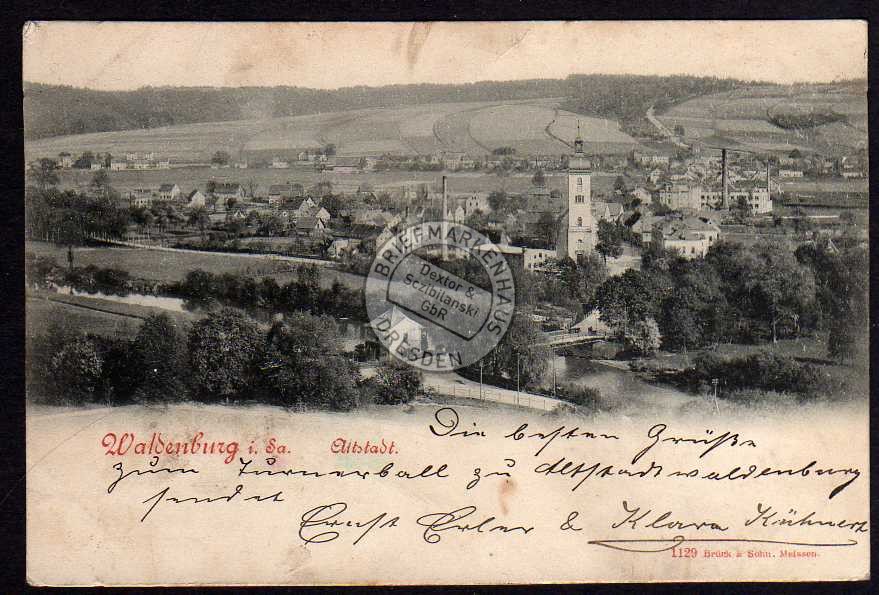 BRIEFMARKENHAUS
Dextor &
Sczibilanski
GbR
DRESDEN
Waldenburg i. Sa. Altstadt.
Die besten Grüße
zum Turnerball zu Altstadtwaldenburg
sendet
Ernst Erler & Klara Kühnert
1129 Brück & Sohn, Meissen.